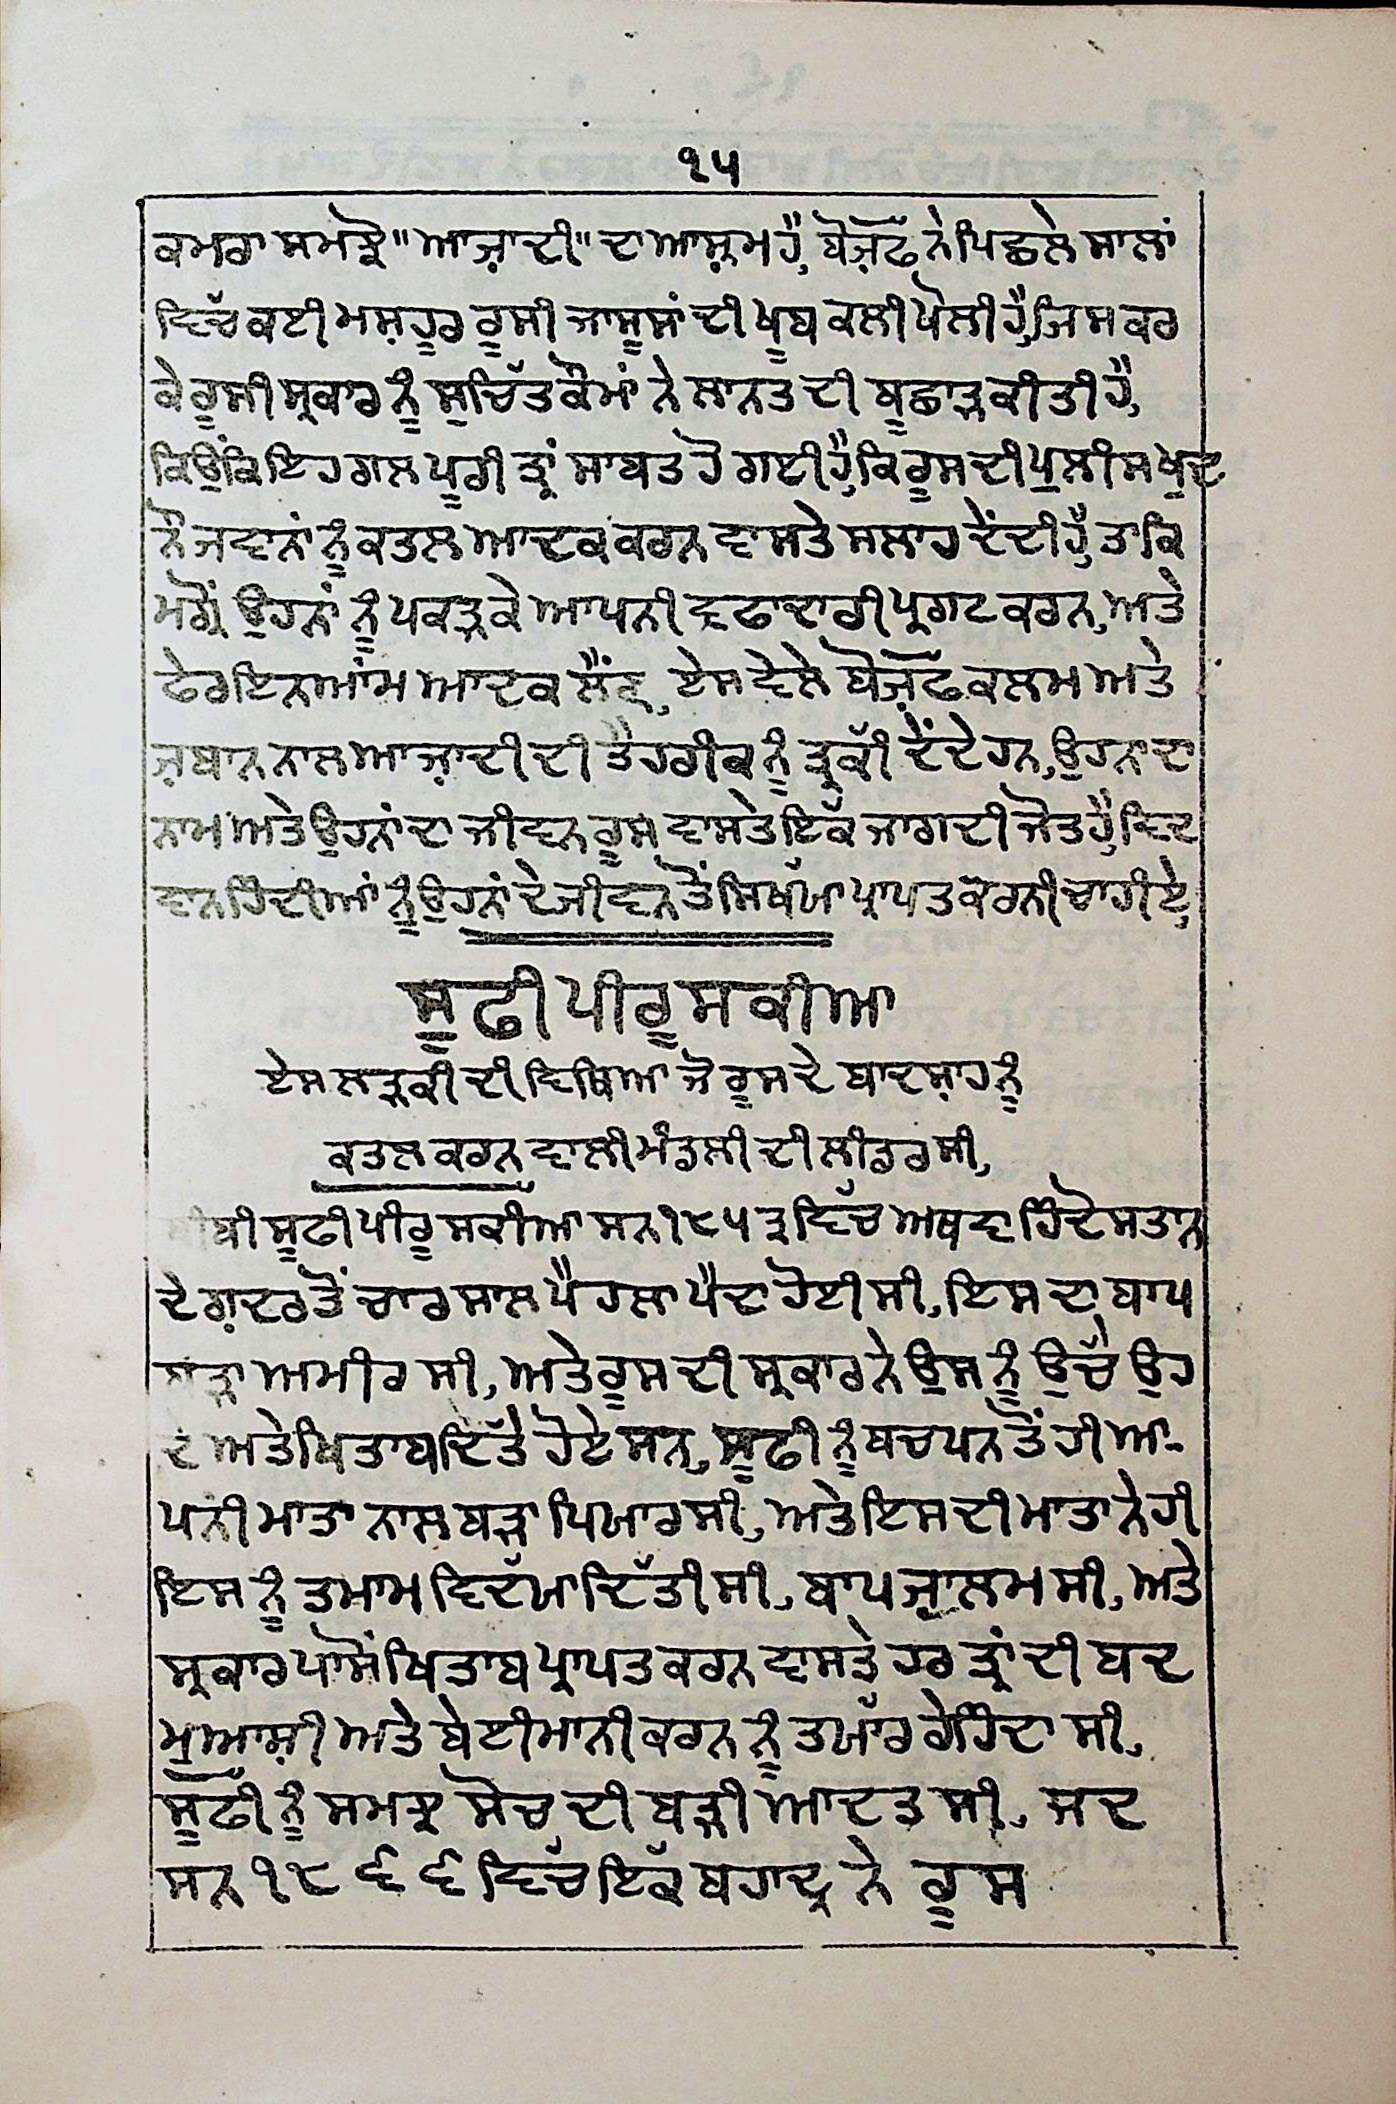 ੧੫
ਕਮਰਾ ਸਮਝੋ "ਆਜ਼ਾਦੀ" ਦਾ ਆਸ਼੍ਰਮ ਹੈ, ਬੋਜ਼ੌਫ਼ ਨੇ ਪਿਛਲੇ ਸਾਲਾਂ
ਵਿੱਚ ਕਈ ਮਸ਼ਹੂਰ ਰੂਸੀ ਜਾਸੂਸਾਂ ਦੀ ਖੂਬ ਕਲੀ ਖੋਲੀ ਹੈ, ਜਿਸ ਕਰ
ਕੇ ਰੂਸੀ ਸ੍ਰਕਾਰ ਨੂੰ ਸੁਚਿੱਤ ਕੌਮਾਂ ਨੇ ਲਾਨਤ ਦੀ ਬੂਛਾੜ ਕੀਤੀ ਹੈ,
ਕਿਉਂਕਿ ਇਹ ਗਲ ਪੂਰੀ ਤ੍ਰਾਂ ਸਾਬਤ ਹੋ ਗਈ ਹੈ, ਕਿ ਰੂਸ ਦੀ ਪੁਲੀਸ ਖੁਦ
ਨੌਜਵਾਨਾਂ ਨੂੰ ਕਤਲ ਆਦਕ ਕਰਨ ਵਾਸਤੇ ਸਲਾਹ ਦੇਂਦੀ ਹੈ, ਤਾਕਿ
ਮਗ੍ਰੋਂ ਉਹਨਾਂ ਨੂੰ ਪਕੜ ਕੇ ਆਪਨੀ ਵਫਾਦਾਰੀ ਪ੍ਰਗਟ ਕਰਨ, ਅਤੇ
ਫੇਰ ਇਨਆਮ ਆਦਕ ਲੈਂਣ, ਏਸ ਵੇਲੇ ਬੋਜ਼ੌਫ ਕਲਮ ਅਤੇ
ਜ਼ਬਾਨ ਨਾਲ ਆਜ਼ਾਦੀ ਦੀ ਤੈਹਰੀਕ ਨੂੰ ਤ੍ਰਕੀ ਦੇਂਦੇ ਹਨ, ਉਹਨਾਂ ਦਾ
ਨਾਮ ਅਤੇ ਉਹਨਾਂ ਦਾ ਜੀਵਨ ਰੂਸ ਵਾਸਤੇ ਇੱਕ ਜਾਗਦੀ ਜੋਤ ਹੈ, ਵਿਦ
ਵਾਨ ਹਿੰਦੀਆਂ ਨੂੰ ਉਹਨਾਂ ਦੇ ਜੀਵਨ ਤੋਂ ਸਿਖੱਯਾ ਪ੍ਰਾਪਤ ਕਰਨੀ ਚਾਹੀਏ,
ਸੂਫੀ ਪੀਰੂਸਕੀਆ
ਏਸ ਲੜਕੀ ਦੀ ਵਿਥਿਆ ਜੋ ਰੂਸ ਦੇ ਬਾਦਸ਼ਾਹ ਨੂੰ
ਕਤਲ ਕਰਨ ਵਾਲੀ ਮੰਡਲੀ ਦੀ ਲੀਡਰ ਸੀ,
ਬੀਬੀ ਸੂਫੀ ਪੀਰੂਸਕੀਆ ਸਨ ੧੮੫੩ ਵਿੱਚ ਅਥਵਾ ਹਿੰਦੋਸਤਾਨ
ਦੇ ਗ਼ਦਰ ਤੋਂ ਚਾਰ ਸਾਲ ਪੈਹਲਾ ਪੈਦਾ ਹੋਈ ਸੀ, ਇਸ ਦਾ ਬਾਪ
ਬੜਾ ਅਮੀਰ ਸੀ, ਅਤੇ ਰੂਸ ਦੀ ਸ੍ਰਕਾਰ ਨੇ ਉਸ ਨੂੰ ਉਚੇ ਉਹ
ਦੇ ਅਤੇ ਖਿਤਾਬ ਦਿੱਤੇ ਹੋਏ ਸਨ, ਸੂਫੀ ਨੂੰ ਬਚਪਨ ਤੋਂ ਹੀ ਆ-
ਪਨੀ ਮਾਤਾ ਨਾਲ ਬੜਾ ਪਿਯਾਰ ਸੀ, ਅਤੇ ਇਸ ਦੀ ਮਾਤਾ ਨੇ ਹੀ
ਇਸ ਨੂੰ ਤਮਾਮ ਵਿਦੱਯਾ ਦਿੱਤੀ ਸੀ, ਬਾਪ ਜ਼ਾਲਮ ਸੀ, ਅਤੇ
ਸ੍ਰਕਾਰ ਪਾਸੋਂ ਖਿਤਾਬ ਪ੍ਰਾਪਤ ਕਰਨ ਵਾਸਤੇ ਹਰ ਤ੍ਰਾਂ ਦੀ ਬਦ
ਮੁਆਸ਼ੀ ਅਤੇ ਬੇਈਮਾਨੀ ਕਰਨ ਨੂੰ ਤਯਾੱਰ ਰੇਂਹਿਦਾ ਸੀ,
ਸੂਫੀ ਨੂੰ ਸਮਝ ਸੋਚ ਦੀ ਬੜੀ ਆਦਤ ਸੀ, ਜਦ
ਸਨ ੧੮੬੬ ਵਿੱਚ ਇੱਕ ਬਹਾਦ੍ਰ ਨੇ ਰੂਸ